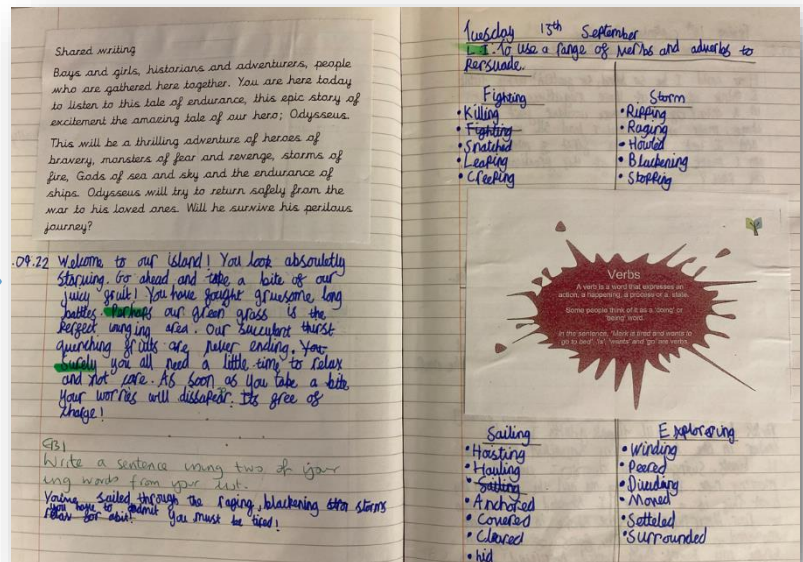 Shared writing
Boys and girls, historians and adventurers, people
who are gathered here together. You are here today
to listen to this tale of endurance, this epic story of
excitement the amazing tale of our hero; Odysseus.
This will be a thrilling adventure of heroes of
bravery, monsters of fear and revenge, storms of
fire, Gods of sea and sky and the endurance of
ships. Odysseus will try to return safely from the
war to his loved ones. Will he survive his perilous
journey?
.09.22 Welcome to our island! You look absouletly
starving. Go ahead and take a bite of our
juicy fruit! You have fought gruesome long
battles. Perhaps our green grass is the
perfect area. Our succulent thirst
quenching fruits are never ending. You
Surely you all need a little time to relax
and not care. As soon as you take a bite
your worries will dissapear. Its free of
charge!
Write a sentence using two of your
ing words from your list.
You've sailed through the raging, blackening storms
you have to admit you must be tired!
relax for abit!
Tuesday 13th September
L.I. To use a range of verbs and adverbs to
persuade.
Fighting
• Killing
• Fighting
• Snatched
• Leaping
• Creeping
Storm
• Ripping
• Raging
• Howled
• Blackening
• Stopping
Verbs
A verb is a word that expresses an
action, a happening, a process or a state.
Some people think of it as a 'doing' or
'being' word.
In the sentence, 'Mark is tired and wants to
go to bed', 'is', 'wants' and 'go' are verbs.
Sailing
• Hoisting
• Hauling
• Sailing
• Anchored
• Covered
• Cleared
• hid
Explorering
• Winding
• Peered
• Moved
• Setteled
• Surrounded